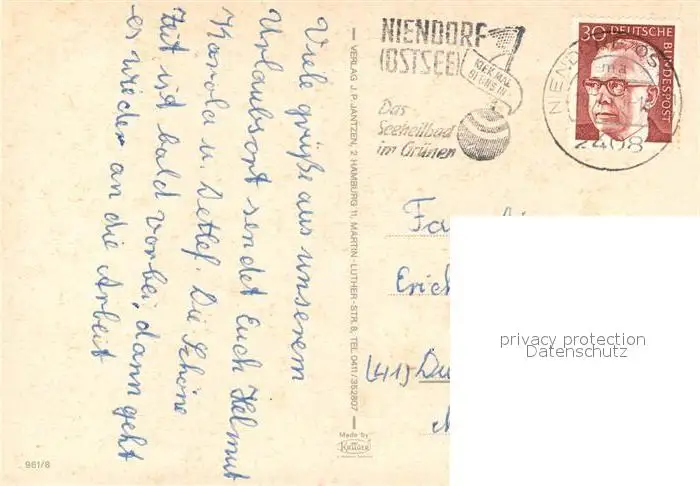 Viele Grüße aus unserem
Urlaubsort sendet Euch Helmut
Karola u. Detlef. Die Schöne
Zeit ist bald vorbei, dann geht
es wieder an die Arbeit
VERLAG J. P. JANTZEN, 2 HAMBURG 11, MARTIN-LUTHER-STR. 8, TEL. 0411/352807
Made by
Krüger
961/8
NIENDORF
(OSTSEE)
Das
Seeheilbad
im Grünen
30 DEUTSCHE
BUNDESPOST
2408
Erich
(41) Du
privacy protection
Datenschutz